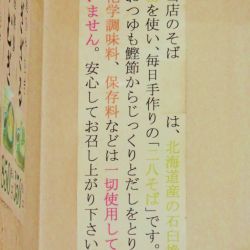 当店のそば　　は、北海道産の石臼
を使い、毎日手作りの「二八そば」です。
おつゆも鰹節からじっくりとだしをとり
化学調味料、保存料などは一切使用して
いません。安心してお召し上がり下さい